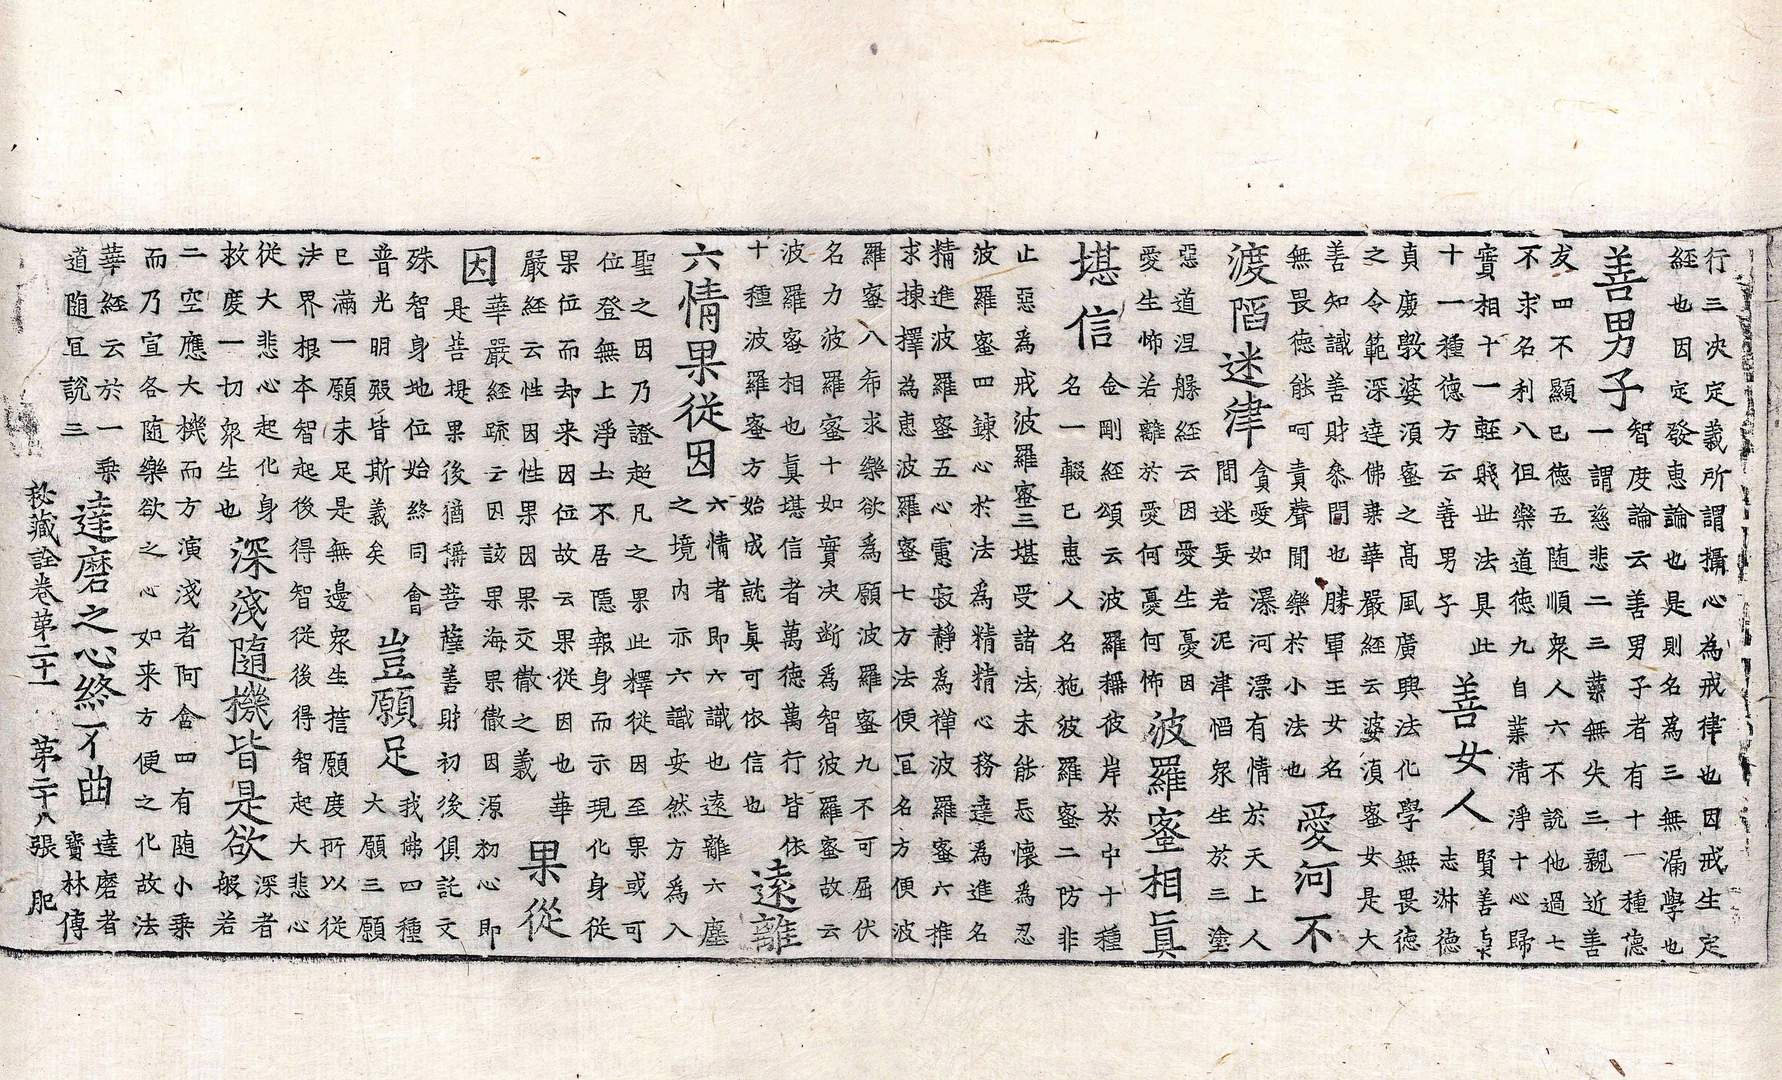 行三决定義所謂攝心為戒律也因戒生定
經也因定發惠論也是則名為三無漏學也
善男子
智度論云善男子者有十一種德
一謂慈悲二三業無失三親近善
友四不顯已德五随順衆人六不說他過七
不求名利八伹樂道德九自業清淨十心歸
實相十一輕賤世法具此
十一種德方云善男子
善女人
賢善
志淋德
貞廢斅婆須蜜之髙風廣興法化學無畏德
之令範深達佛乗華嚴經云婆須蜜女是大
善知識善財叅問也勝軍王女名
無畏德能呵責聲聞樂於小法也
愛河不
渡㴞迷津
貪愛如瀑河漂有情於天上人
間迷妄若泥津惛衆生於三塗
惡道涅槃經云因愛生憂因
愛生怖若離於愛何憂何怖
波羅蜜相眞
堪信
金剛經頌云波羅稱彼岸於中十種
名一輟已惠人名施波羅蜜二防非
止惡為戒波羅蜜三堪受諸法未能忘懷為忍
波羅蜜四鍊心於法為精精心務達為進名
精進波羅蜜五心慮寂靜為禪波羅蜜六推
求揀擇為惠波羅蜜七方法便冝名方便波
羅蜜八希求樂欲為願波羅蜜九不可屈伏
名力波羅蜜十如實决断為智波羅蜜故云
波羅蜜相也眞堪信者萬德萬行皆依
十種波羅蜜方始成就眞可依信也
遠離
六情果從因
六情者即六識也遠離六塵
之境內示六識安然方為入
聖之因乃證超凡之果此釋從因至果或可
位登無上淨土不居隠報身而示現化身從
果位而却来因位故云果從因也華
嚴經云性因性果因果交徹之義
果從
因
華嚴經䟽云因該果海果徹因源初心即
是菩提果後猶稱菩薩善財初後俱託文
殊智身地位始終同會
普光明殿皆斯義矣
豈願足
我佛四種
大願三願
已滿一願未足是無邊衆生誓願度所以從
法界根本智起後得智從後得智起大悲心
從大悲心起化身
救度一切衆生也
深淺隨機皆是欲
深者
般若
二空應大機而方演淺者阿含四有随小乗
而乃宣各随樂欲之心如来方便之化故法
華經云於一乗
道随冝說三
達磨之心終不曲
達磨者
寶林傳
秘藏詮卷第二十一 第二十八張 肥